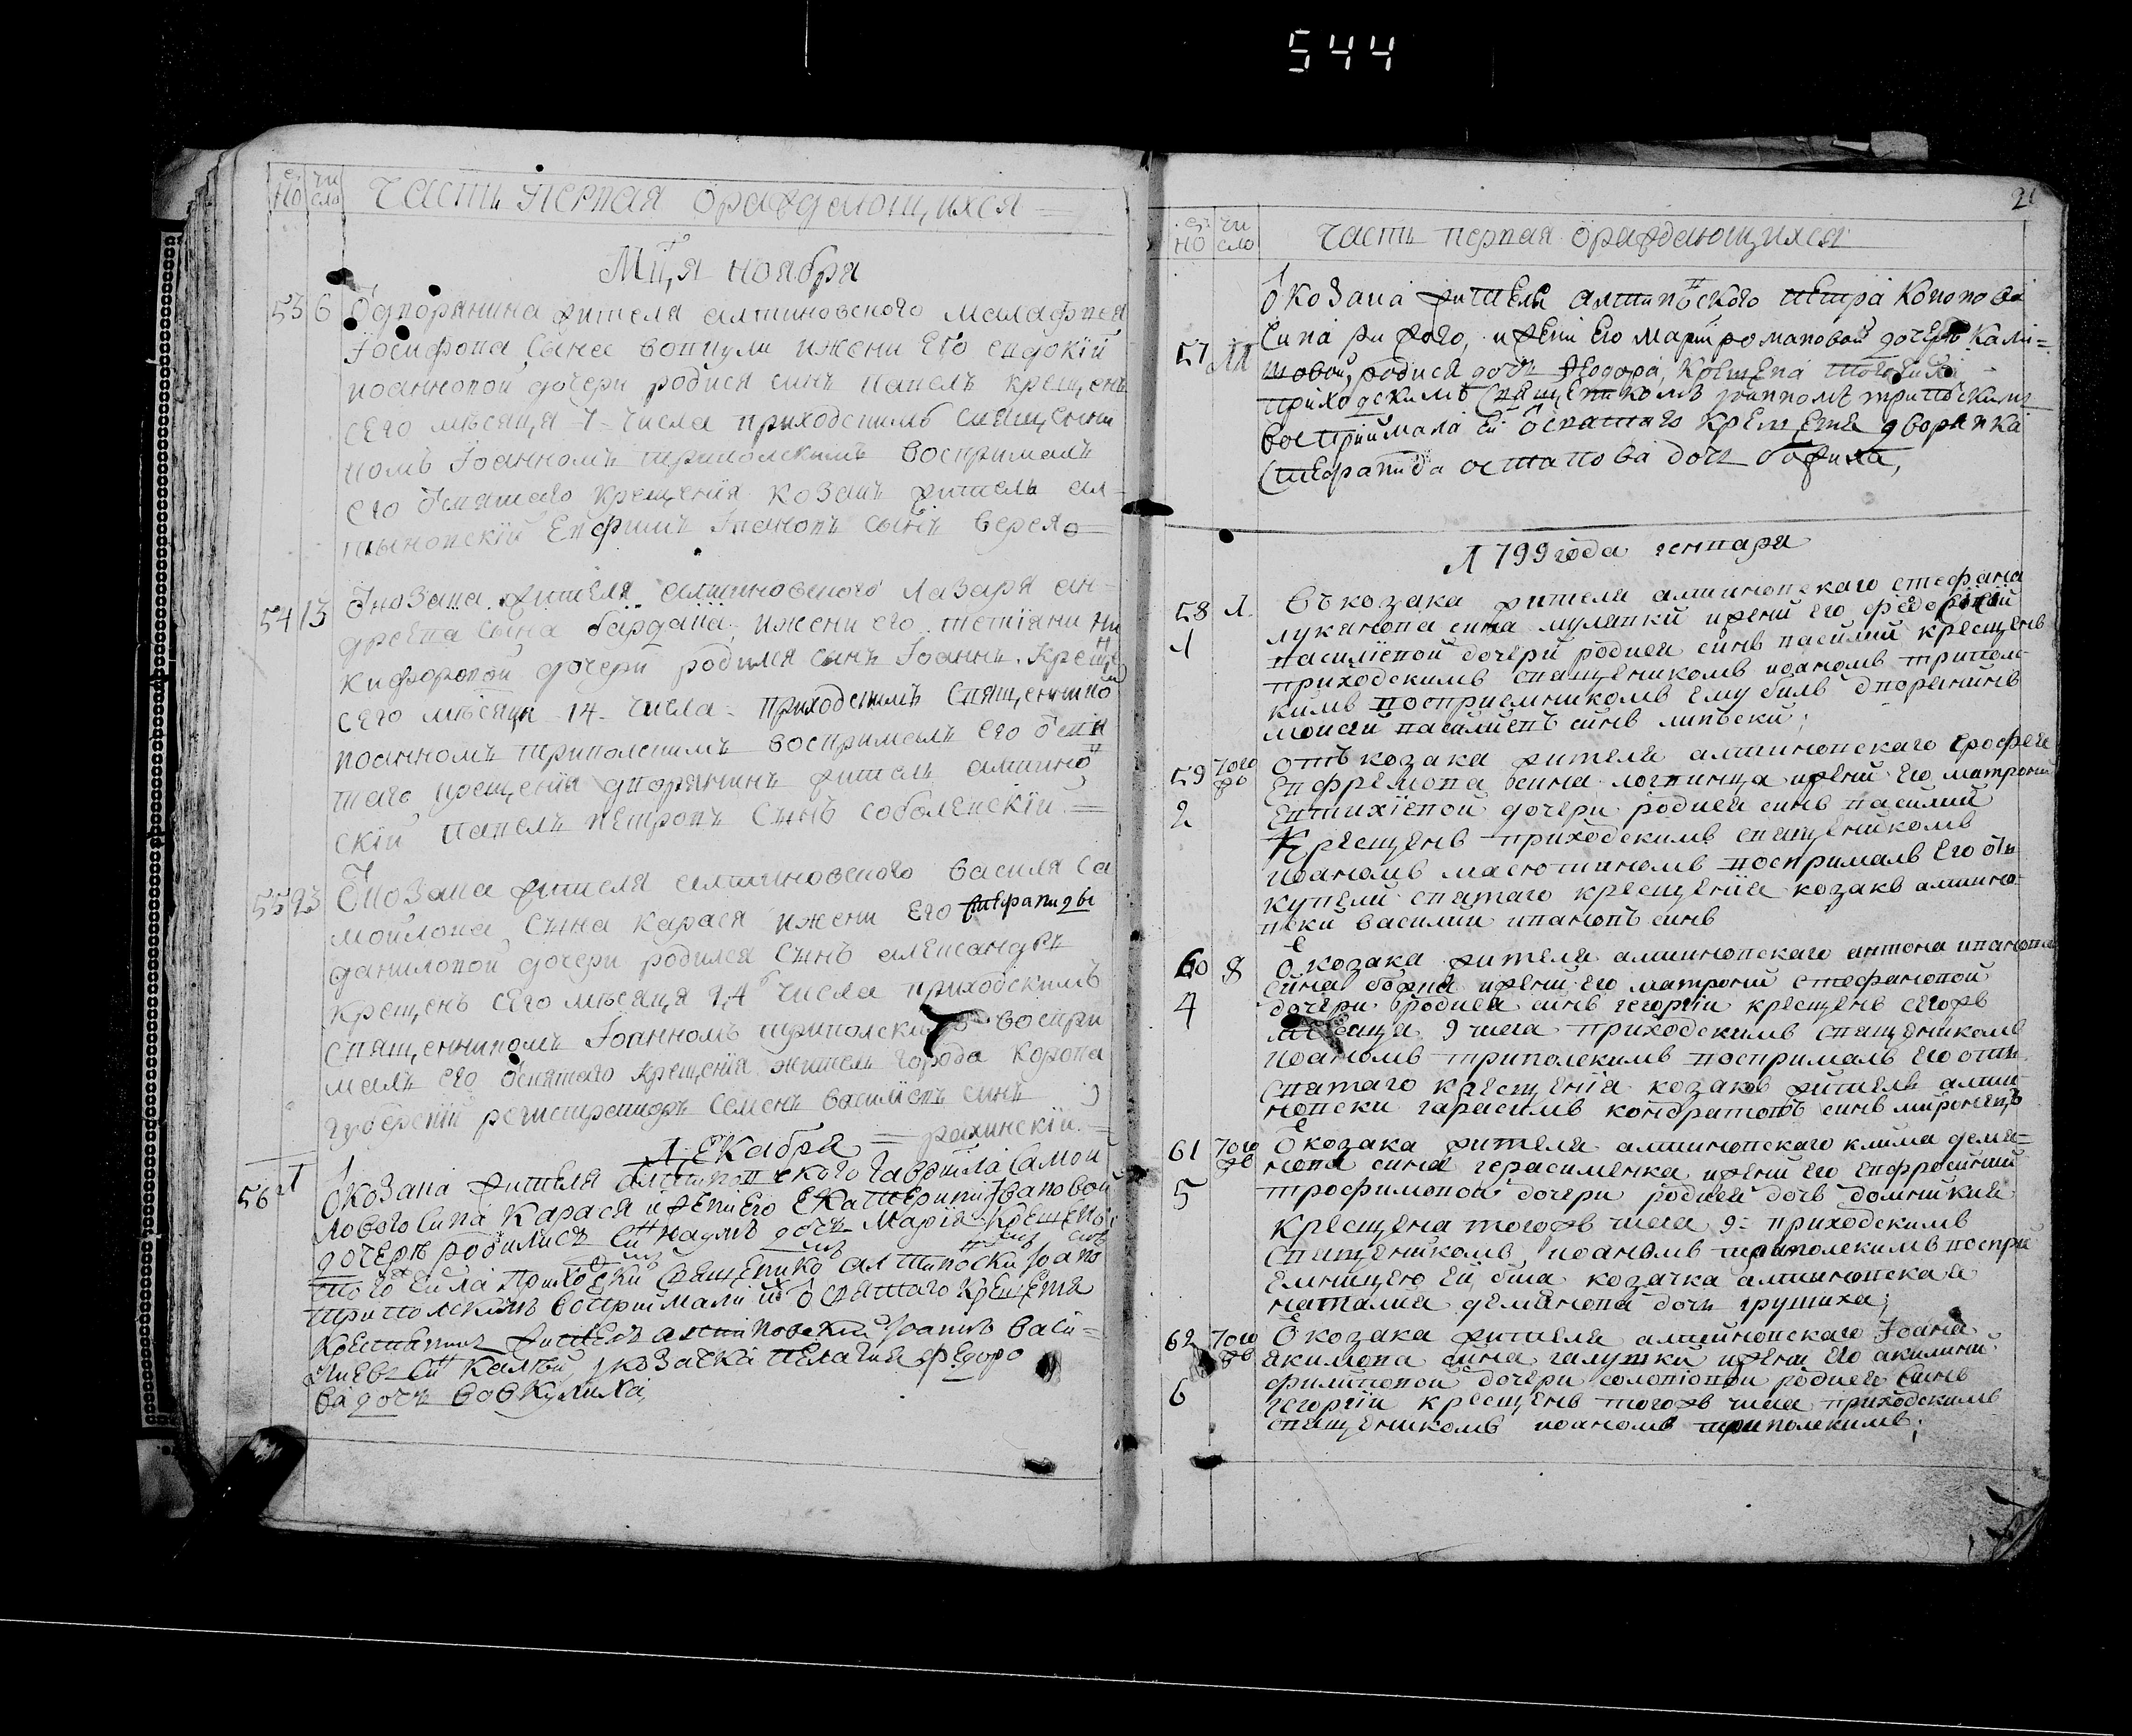 544
ез
но
чи
сло
часть первая ораждающихся
Мц,я ноября
53 6 Одворянина жителя алтиновского малафтея
Иосифова Сына воппули ижени Его евдокїй
иоанновой дочери родися синъ павелъ крещенъ
сЕго мѣсяця 7 числа приходскимъ священни
комъ Иоанномъ трипольскимъ воспрималъ
его ѿсвятаго крещенїя козакъ житель ал-
тыновскїй Евфимъ Ивановъ сынъ верехо
54 13 Ѿкозака жителя алтиновского Лазаря ан-
дреева сына бардака ижени его тетїяни ни
кифоровой дочери родился сынъ Иоаннъ. Креще
сЕго мѣсяця 14 числа приходскимъ Священико
иоанномъ трипольскимъ воспрималъ Его ѿсвя
таго крещенїя дворянинъ житель алтино
скїй павелъ петровъ Сынъ соболевскїй
55 23 Ѿкозака жителя алтиновского василя са
мойлова Сына карася ижени Его стефаниды
даниловой дочери родился Сынъ александръ
крещенъ сЕго мѣсяця 24 числа приходскимъ
священникомъ Иоанномъ триполским воспри
малъ его ѿсвятаго крещенїя житель города коропа
губерскїй регистраторъ Семенъ василїевъ синъ
рахинскїй
дЕкабря
56 1 Ѿкозака жителя алтиновского гаврїила самои
лового сина карася ижени Его Екатерини Ивановой
дочерѣ родилисъ сн наумъ дочъ Марїя крещены
того числа приходски священико алтиноски Иоано
триполскимъ восприймали их ѿсвятаго крещения
крестьянинъ жителъ алтиновский Иоаннъ васи=
лиевъ сн калюй, и козачка пелагия федоро
ва дочъ вовкулиха,
21
ез
но
чи
сло
часть первая ѿраждающихся
Ѿкозака жителя алтиноского петра кононова
57 11 сина рижого, ижени Его марїи романовой дочерѣ кали=
товой, родися дочъ Феодора, крещена того числа
приходскимъ священикомъ иоанномъ трипольскимъ
восприймала ей ѿсвятаго крещения дворянка
стефанида остапова дочъ божиха,
1799 года генваря
58 1 ѿтъ козака жителя алтиновскаго стефана
1 лукянова сина мулявки ижени его федоркїй
василїевой дочери родися синъ василий крещенъ
приходскимъ священикомъ иоаномъ трипол-
кимъ восприемникомъ ему билъ дворянинъ
моисей василиевъ синъ липъски;
59 того жъ отъ козака жителя алтиновскаго ерофея
2 Ефремова сина логвинца ижени Его матрони
Евтихїевой дочери родися синъ василий
Крещенъ приходскимъ священикомъ
иоаномъ маютиномъ воспрималъ Его отъ
купели святаго крещения козакъ алтино
вски василий ивановъ синъ
60 8 Ѿ козака жителя алтиновскаго антона иванова
4 сина бовна ижени его матрони стефановой
дочери родися синъ георгїи крещенъ сегожъ
мѣсяца 9 числа приходскимъ священикомъ
иоаномъ триполскимъ воспрималъ его отъ
святаго крещенїя козакъ житель алти-
новски гарасимъ кондратовъ синъ миронецъ
61 того жъ Ѿ козака жителя алтиновскаго клима демя-
5 нова сина герасименка ижени Его евфросинии
трофимовой дочери родися дочъ домникия
крещена тогожъ числа 9 приходскимъ
священикомъ, иоаномъ триполскимъ воспри
емницею ей била козачка алтиновская
наталия демянова дочъ грушиха;
62 того жъ Ѿ козака жителя алтиновскаго Иоана
якимова сина галушки ижени его акилини
6 филиповой дочери солопїовой родися синъ
георгїи крещенъ тогожъ числа приходскимъ
священикомъ иоаномъ триполскимъ;